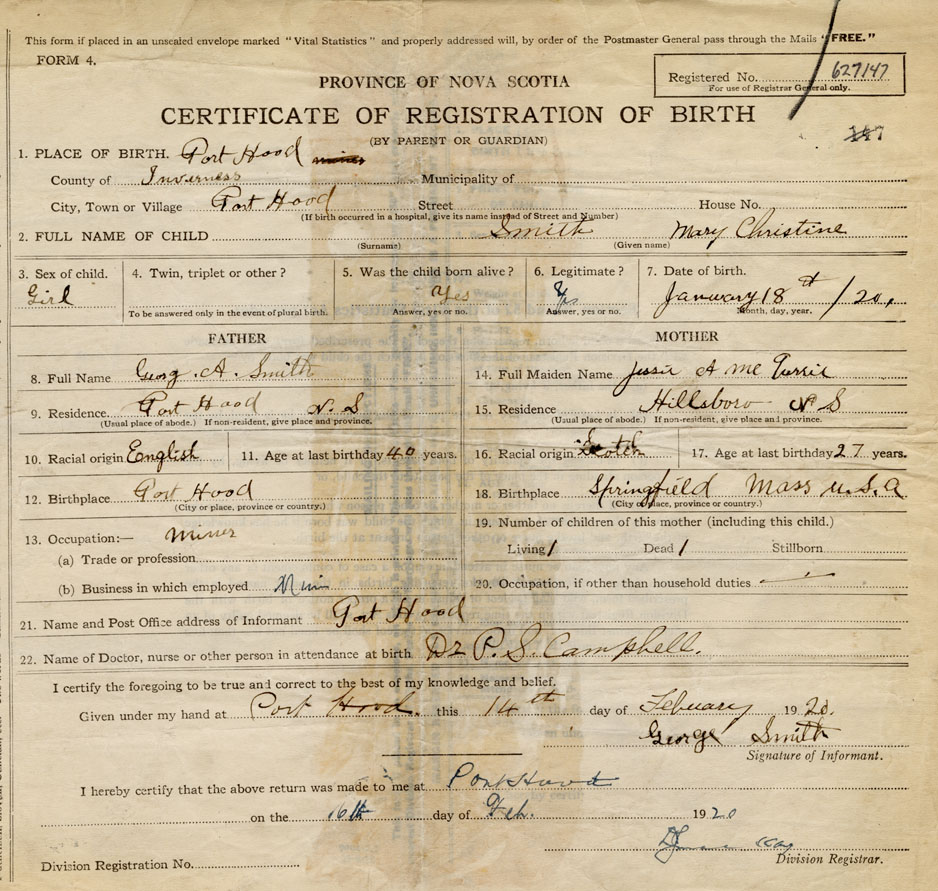 This form if placed in an unsealed envelope marked "Vital Statistics" and properly addressed will, by order of the Postmaster General pass through the Mails "FREE."
FORM 4.
Registered No. 627147
For use of Registrar General only.
PROVINCE OF NOVA SCOTIA
CERTIFICATE OF REGISTRATION OF BIRTH
(BY PARENT OR GUARDIAN)
1. PLACE OF BIRTH. Port Hood
County of Inverness Municipality of
City, Town or Village Port Hood Street House No.
(If birth occurred in a hospital, give its name instead of Street and Number)
2. FULL NAME OF CHILD Smith Mary Christine
(Surname) (Given name)
3. Sex of child. 4. Twin, triplet or other? 5. Was the child born alive? 6. Legitimate? 7. Date of birth.
Girl Yes Yes January 18th /20.
To be answered only in the event of plural birth. Answer, yes or no. Answer, yes or no. Month, day, year.
FATHER MOTHER
8. Full Name Georg. A. Smith 14. Full Maiden Name Jessie A Mc
9. Residence. Port Hood N.S 15. Residence Hillsboro N S
(Usual place of abode.) If non-resident, give place and province. (Usual place of abode.) If non-resident, give place and province.
10. Racial origin English 11. Age at last birthday 40 years. 16. Racial origin Scotch 17. Age at last birthday 27 years.
12. Birthplace Port Hood 18. Birthplace Springfield Mass U.S.A
(City or place, province or country.) (City or place, province or country.)
13. Occupation:— Miner 19. Number of children of this mother (including this child.)
(a) Trade or profession Living 1 Dead 1 Stillborn
(b) Business in which employed 20. Occupation, if other than household duties
21. Name and Post Office address of Informant Port Hood
22. Name of Doctor, nurse or other person in attendance at birth Dr P. S. Campbell.
I certify the foregoing to be true and correct to the best of my knowledge and belief.
Given under my hand at Port Hood. this 14th day of February 1920.
George Smith
Signature of Informant.
I hereby certify that the above return was made to me at Port Hood
on the 16th day of Feb. 1920
Division Registration No. Division Registrar.